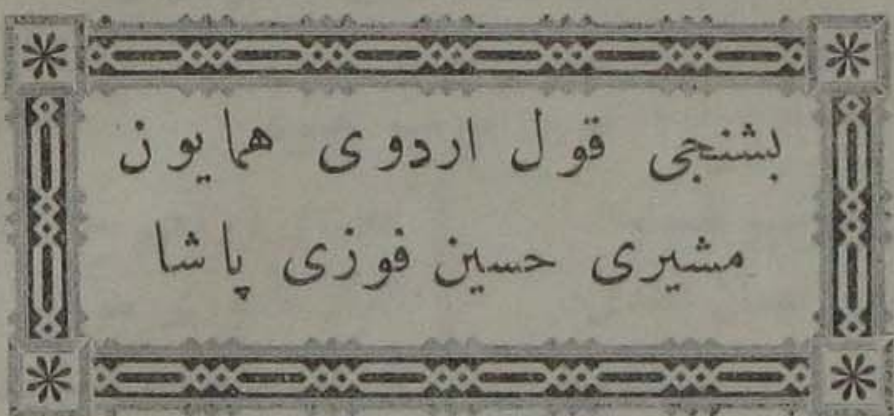 بشنجی قول اردوی همایون
مشیری حسین فوزی پاشا